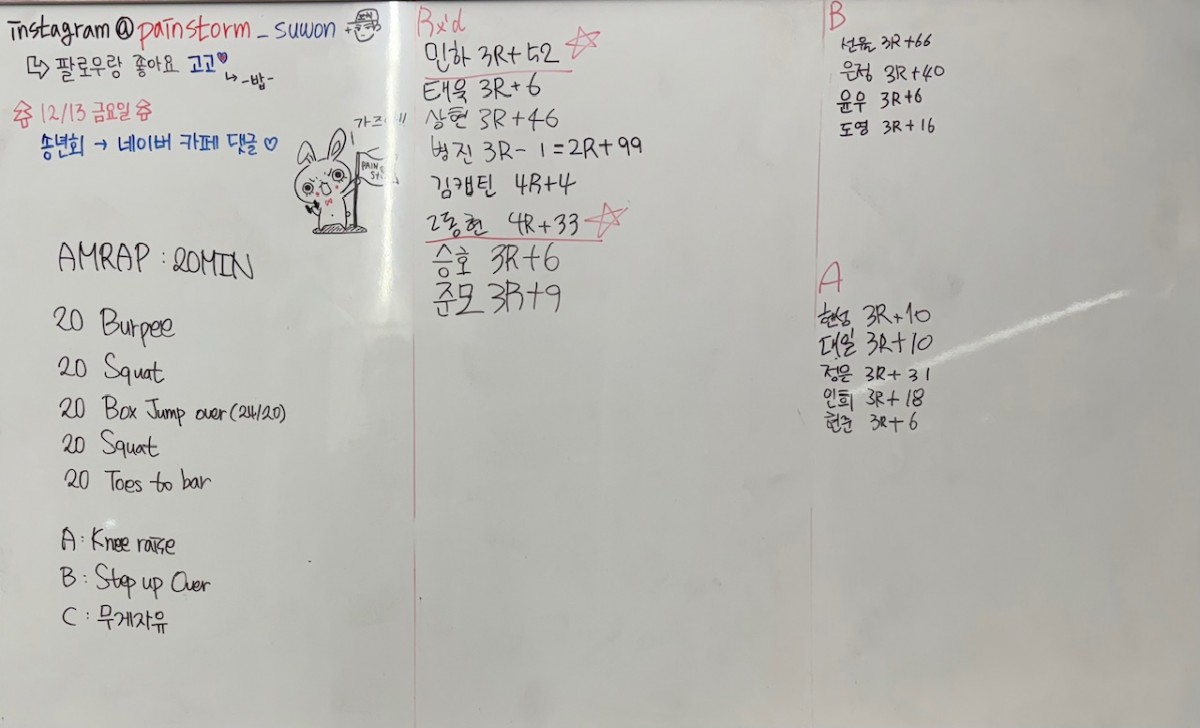 instagram@painstorm_suwon
팔로우랑 좋아요 고고
-밥-
12/13 금요일
송년회 → 네이버 카페 댓글 ♡
PAIN
AMRAP : 20MIN
20 Burpee
20 Squat
20 Box Jump over (24/20)
20 Squat
20 Toes to bar
A : Knee raise
B : Step up Over
C : 무게자유
Rx'd
민하 3R+52
태욱 3R+6
상현 3R+46
병진 3R-1=2R+99
김캡틴 4R+4
2동현 4R+33
승호 3R+6
준모 3R+9
B
3R+66
은정 3R+40
윤우 3R+6
도영 3R+16
A
현성 3R+10
대일 3R+10
정은 3R+31
인희 3R+18
현준 3R+6